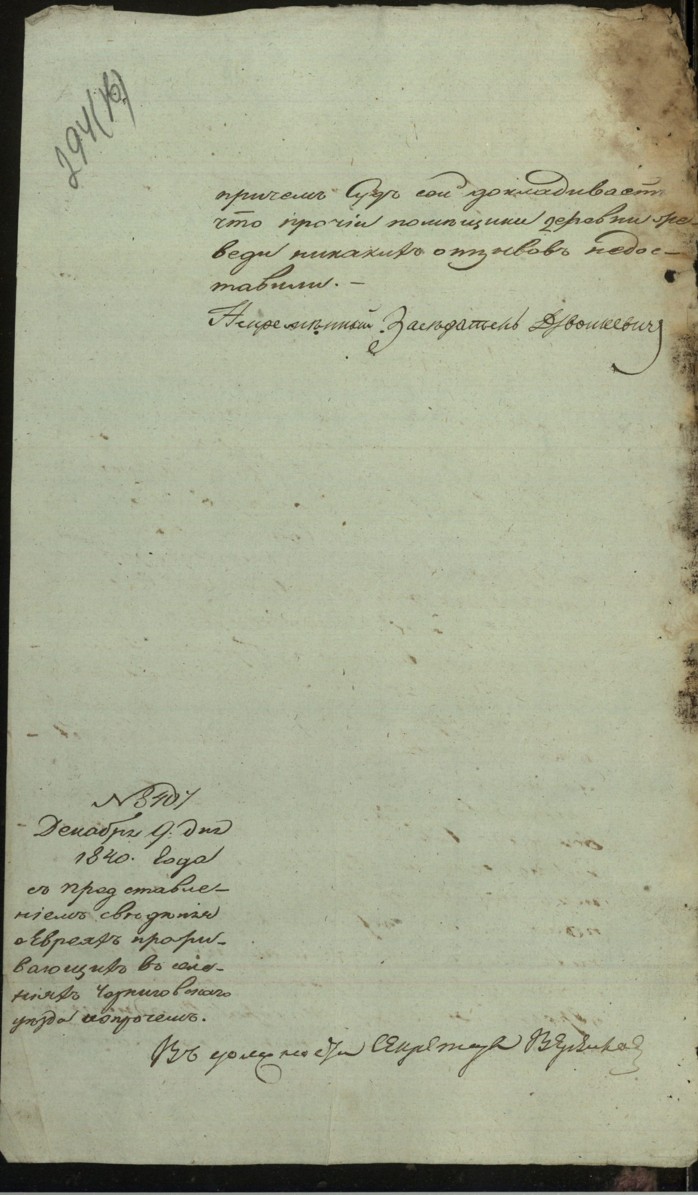 294(в)
причемъ Судъ сей докладываетъ
что прочіи помѣщики деревни Ре-
веди никакихъ отзывовъ недос-
тавили. –
Непремѣнный Засѣдатель Двонкевичъ
№ 8401
Декабря 9. дня
1840. Года
съ представле-
ніемъ свѣдѣнія
о Евреяхъ прожи-
вающихъ въ селе-
ніяхъ Черниговскаго
уѣзда ипрочемъ.
Въ должности Секретаря